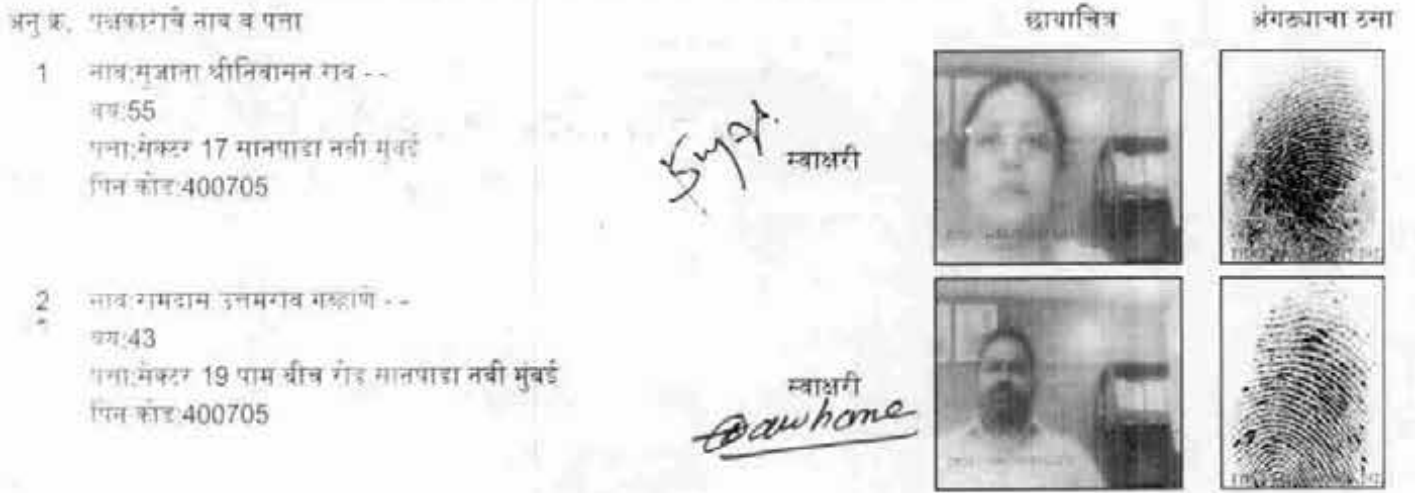 अनु क्र. पक्षकाराचे नाव व पत्ता छायाचित्र अंगठ्याचा ठसा
1 नाव:सुजाता श्रीनिवासन राव - -
वय:55
पत्ता:सेक्टर 17 सानपाडा नवी मुंबई
पिन कोड:400705
स्वाक्षरी
2 नाव:रामदास उत्तमराव गव्हाणे - -
वय:43
पत्ता:सेक्टर 19 पाम बीच रोड सानपाडा नवी मुंबई
पिन कोड:400705
स्वाक्षरी